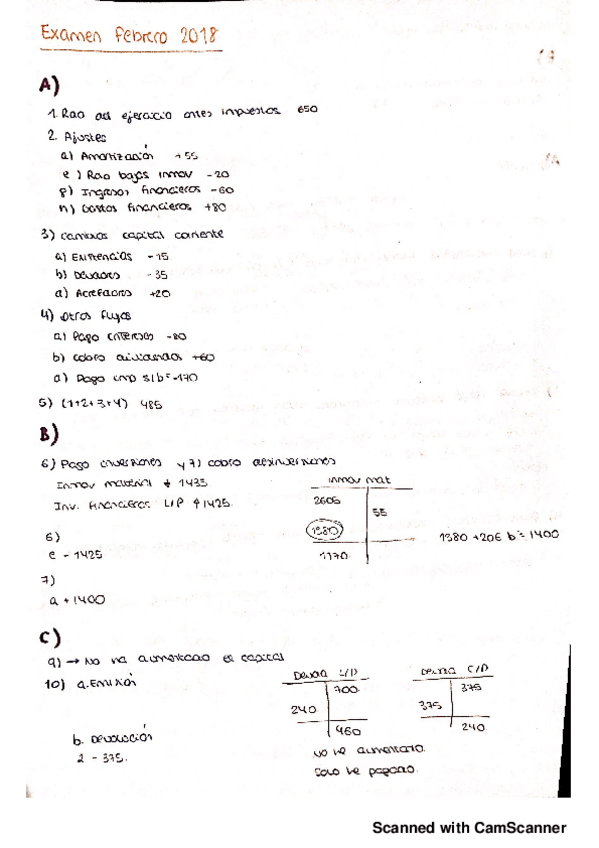 Examen Febrero 2018
A)
1. Rdo del ejercicio antes impuestos 650
2. Ajustes
a) Amortización +55
e) Rdo bajas inmov -20
g) Ingresos financieros -60
h) Gastos financieros +80
3) Cambios capital corriente
a) Existencias -15
b) Deudores -35
d) Acreedores +20
4) Otros flujos
a) Pago intereses -80
b) Cobro dividendos +60
d) Pago imp s/b = -170
5) (1+2+3+4) 485
B)
6) Pago inversiones y 7) cobro desinversiones
Inmov material ↓ 1435
Inv. financieras L/P ↑ 1425.
inmov mat
2605
55
1380
1380 + 20€ b = 1400
1170
6)
e - 1425
7)
a + 1400
C)
9) → No ha aumentado el capital
10) a. Emisión
Deuda L/P
700
240
460
Deuda C/P
375
375
240
b. Devolución
2 - 375.
No he aumentado.
Solo he pagado.
Scanned with CamScanner